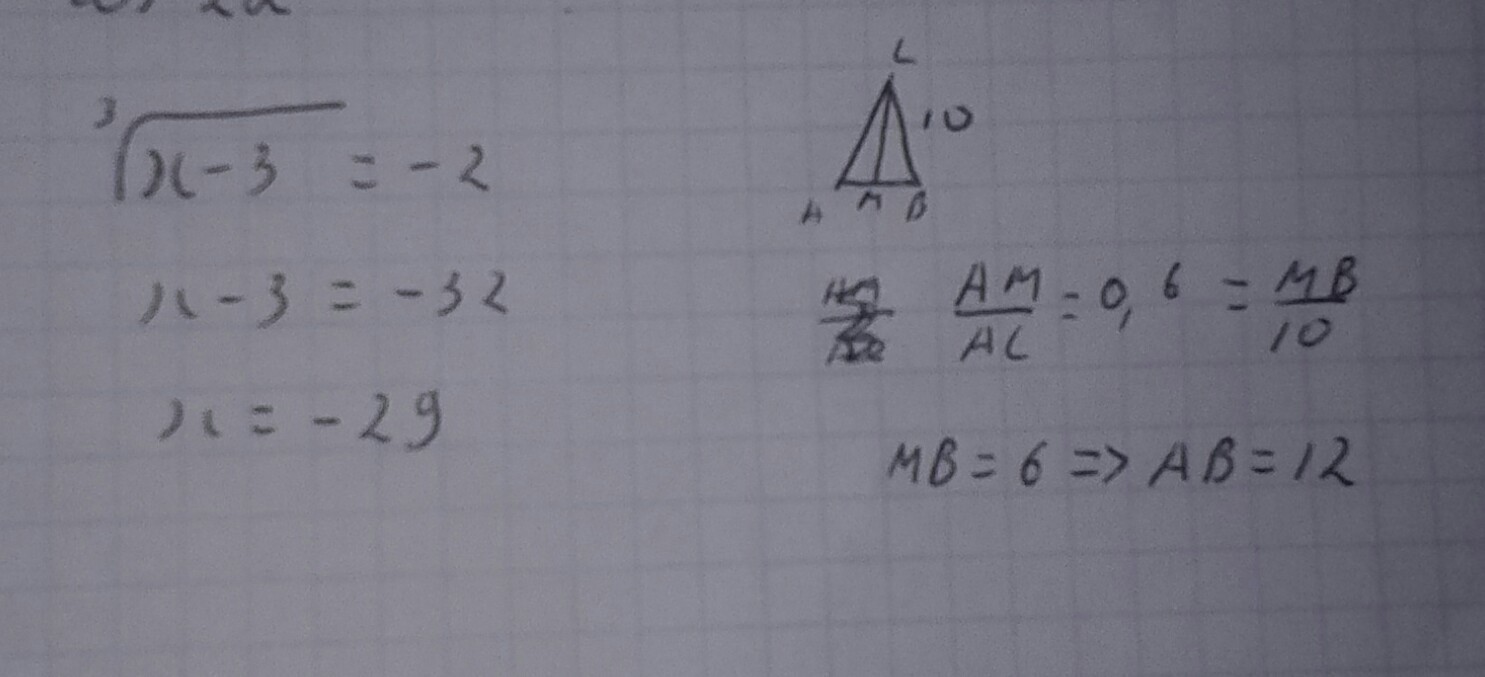 ∛(x-3) = -2
x-3 = -32
x = -29
C
10
A M B
AM/AC = 0,6 = MB/10
MB = 6 => AB = 12